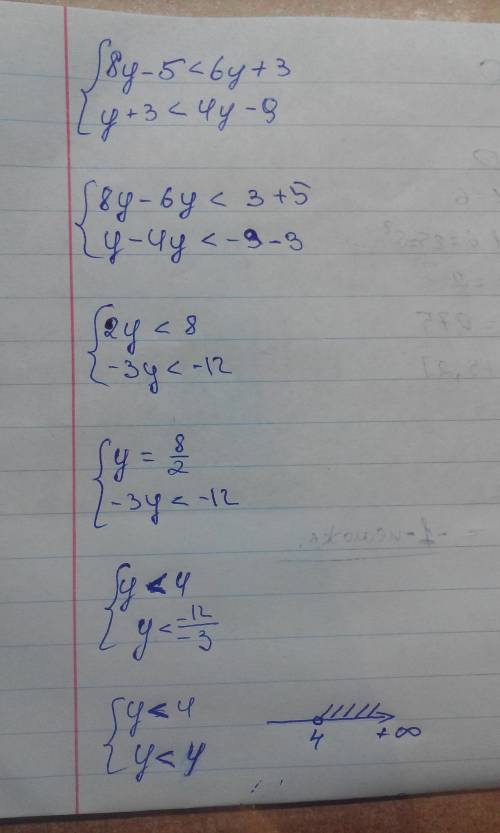 8y-5<6y+3
y+3<4y-9
8y-6y< 3+5
y-4y<-9-3
2y<8
-3y<-12
y=8/2
-3y<-12
y<4
y<-12/-3
y<4
y<4
4 +∞